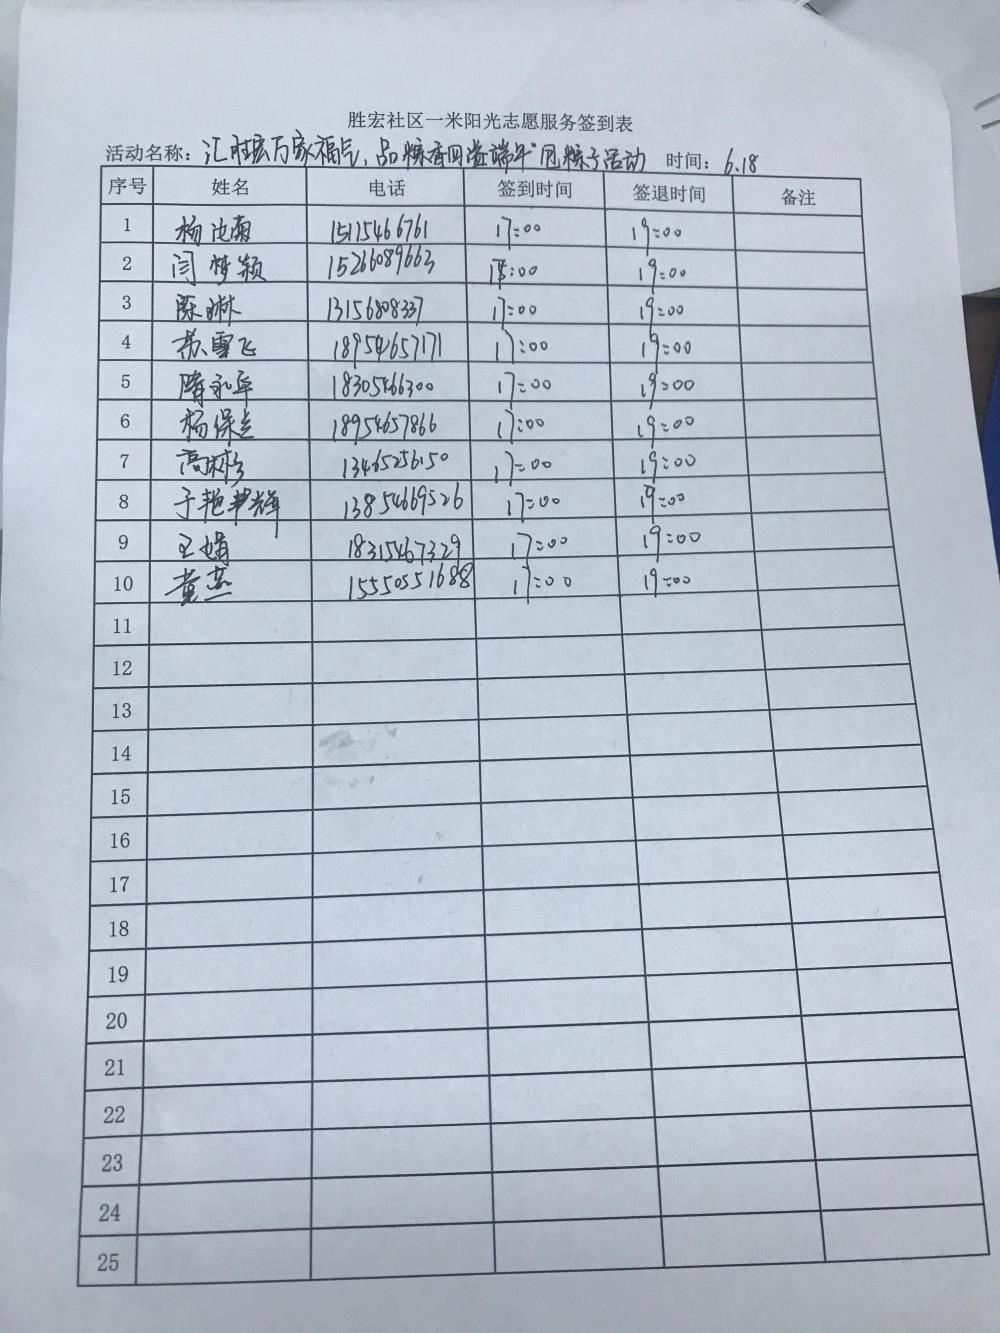 胜宏社区一米阳光志愿服务签到表
活动名称：汇胜宏万家福气，品粽香四溢端午"包粽子活动 时间：6.18
序号 姓名 电话 签到时间 签退时间 备注
1 杨南 15115466761 17:00 19:00
2 闫梦颖 15266089663 17:00 19:00
3 陈琳 13156808337 17:00 19:00
4 苏雪飞 18954657171 17:00 19:00
5 隋永军 18305466300 17:00 19:00
6 杨保 18954657866 17:00 19:00
7 高 13465256150 17:00 19:00
8 于艳辉 13854669526 17:00 19:00
9 王娟 18315467329 17:00 19:00
10 黄燕 15550551688 17:00 19:00
11
12
13
14
15
16
17
18
19
20
21
22
23
24
25